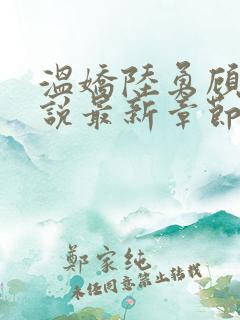 溫嬌陸勇顧
說最新章節
鄭家純
未经同意禁止转载